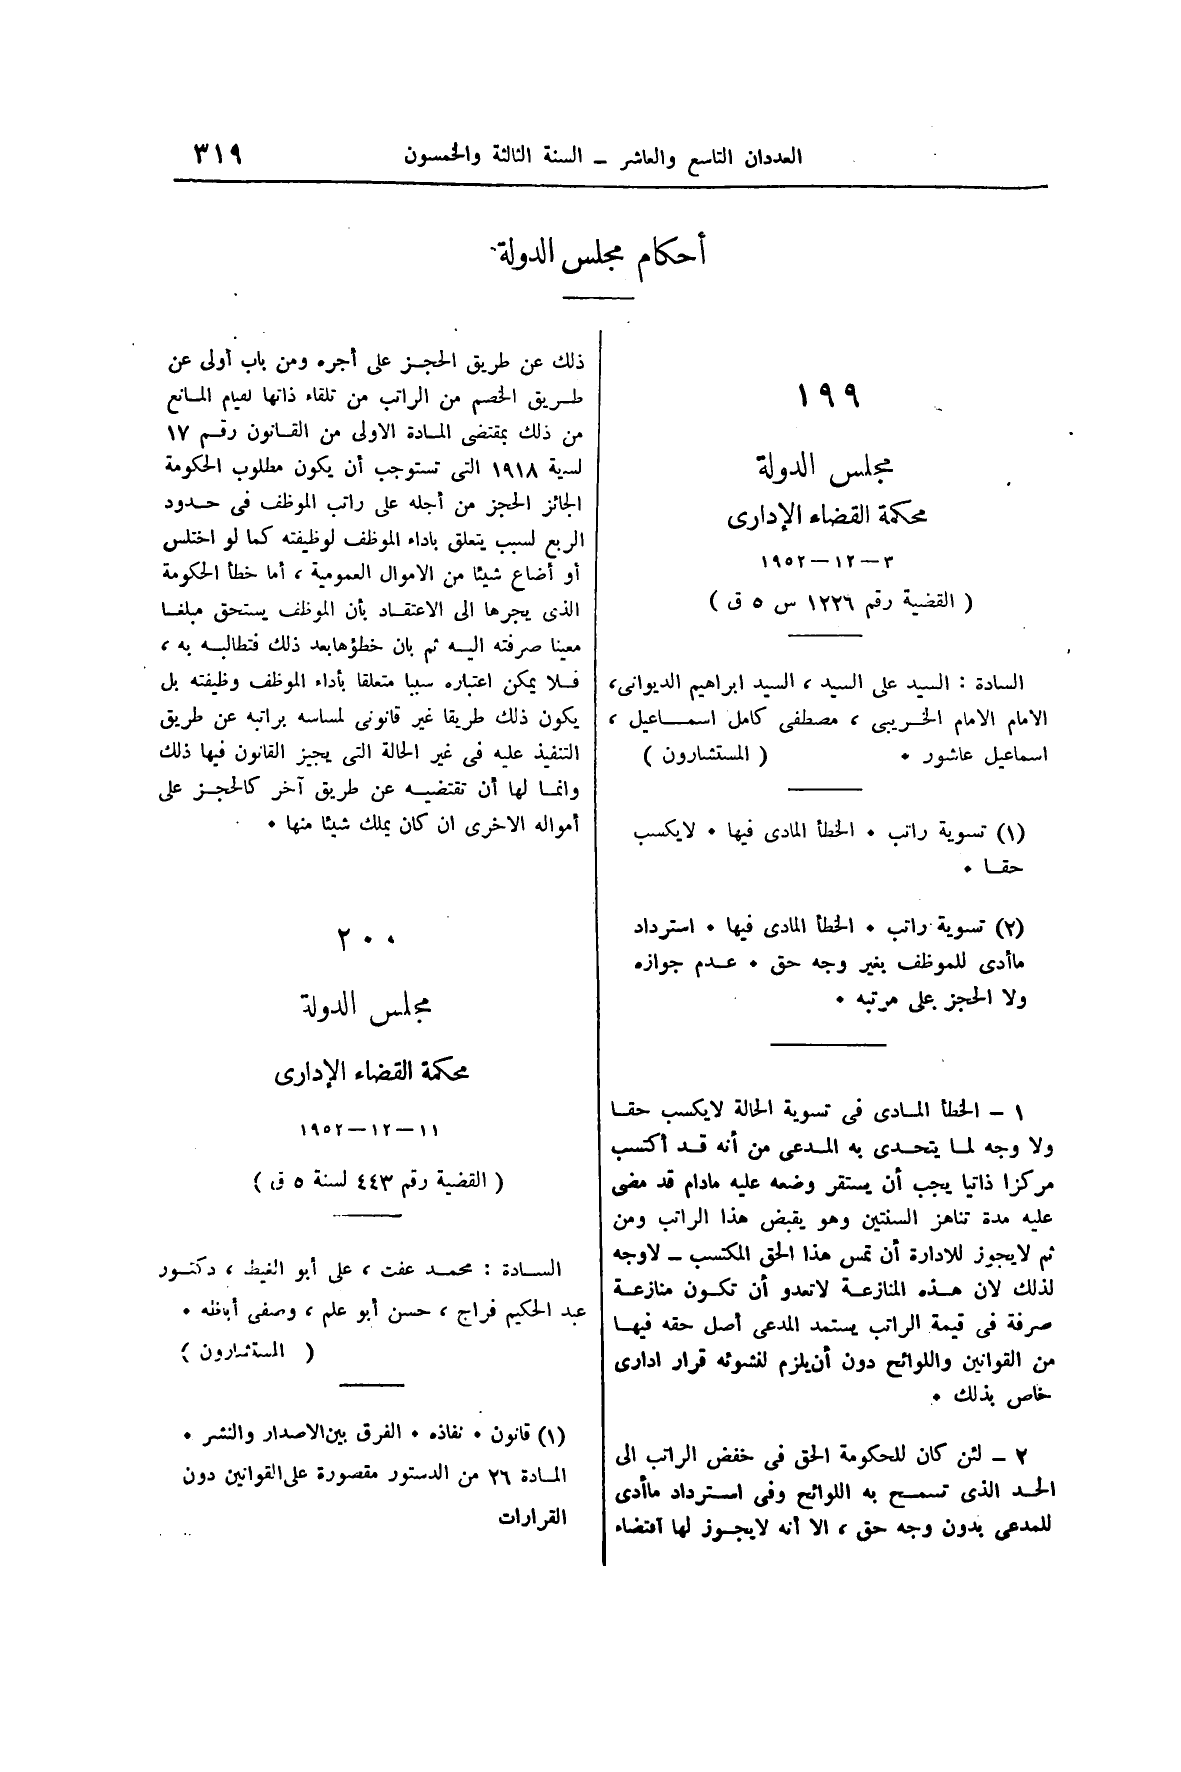 العددان التاسع والعاشر – السنة الثالثة والخمسون
٣١٩
أحكام مجلس الدولة
١٩٩
مجلس الدولة
محكمة القضاء الإدارى
٣–١٢–١٩٥٢
( القضية رقم ١٢٢٦ س ٥ ق )
السادة : السيد على السيد ، السيد ابراهيم الديوانى،
الامام الامام الخريبى ، مصطفى كامل اسماعيل ،
اسماعيل عاشور • ( المستشارون )
(١) تسوية راتب • الخطأ المادى فيها • لايكسب
حقا •
(٢) تسوية راتب • الخطأ المادى فيها • استرداد
ماأدى للموظف بغير وجه حق • عدم جوازه
ولا الحجز على مرتبه •
١ – الخطأ المادى فى تسوية الحالة لايكسب حقا
ولا وجه لما يتحدى به المدعى من أنه قد أكتسب
مركزا ذاتيا يجب أن يستقر وضعه عليه مادام قد مضى
عليه مدة تناهز السنتين وهو يقبض هذا الراتب ومن
ثم لايجوز للادارة أن تمس هذا الحق المكتسب – لاوجه
لذلك لان هذه المنازعة لاتعدو أن تكون منازعة
صرفة فى قيمة الراتب يستمد المدعى أصل حقه فيها
من القوانين واللوائح دون أن يلزم لنشوئه قرار ادارى
خاص بذلك •
٢ – لئن كان للحكومة الحق فى خفض الراتب الى
الحد الذى تسمح به اللوائح وفى استرداد ماأدى
للمدعى بدون وجه حق ، الا أنه لايجوز لها اقتضاء
ذلك عن طريق الحجز على أجره ومن باب أولى عن
طريق الخصم من الراتب من تلقاء ذاتها لقيام المانع
من ذلك بمقتضى المادة الاولى من القانون رقم ١٧
لسرية ١٩١٨ التى تستوجب أن يكون مطلوب الحكومة
الجائز الحجز من أجله على راتب الموظف فى حدود
الربع لسبب يتعلق باداء الموظف لوظيفته كما لو اختلس
أو أضاع شيئا من الاموال العمومية ، أما خطأ الحكومة
الذى يجرها الى الاعتقاد بأن الموظف يستحق مبلغا
معينا صرفته اليه ثم بان خطؤها بعد ذلك فتطالبه به ،
فلا يمكن اعتباره سببا متعلقا بأداء الموظف وظيفته بل
يكون ذلك طريقا غير قانونى لمساسه براتبه عن طريق
التنفيذ عليه فى غير الحالة التى يجيز القانون فيها ذلك
وانما لها أن تقتضيه عن طريق آخر كالحجز على
أمواله الاخرى ان كان يملك شيئا منها •
٢٠٠
مجلس الدولة
محكمة القضاء الإدارى
١١–١٢–١٩٥٢
( القضية رقم ٤٤٣ لسنة ٥ ق )
السادة : محمد عفت ، على أبو الغيط ، دكتور
عبد الحكيم فراج ، حسن أبو علم ، وصفى أباظه •
( المستشارون )
(١) قانون • نفاذه • الفرق بين الاصدار والنشر •
المادة ٢٦ من الدستور مقصورة على القوانين دون
القرارات